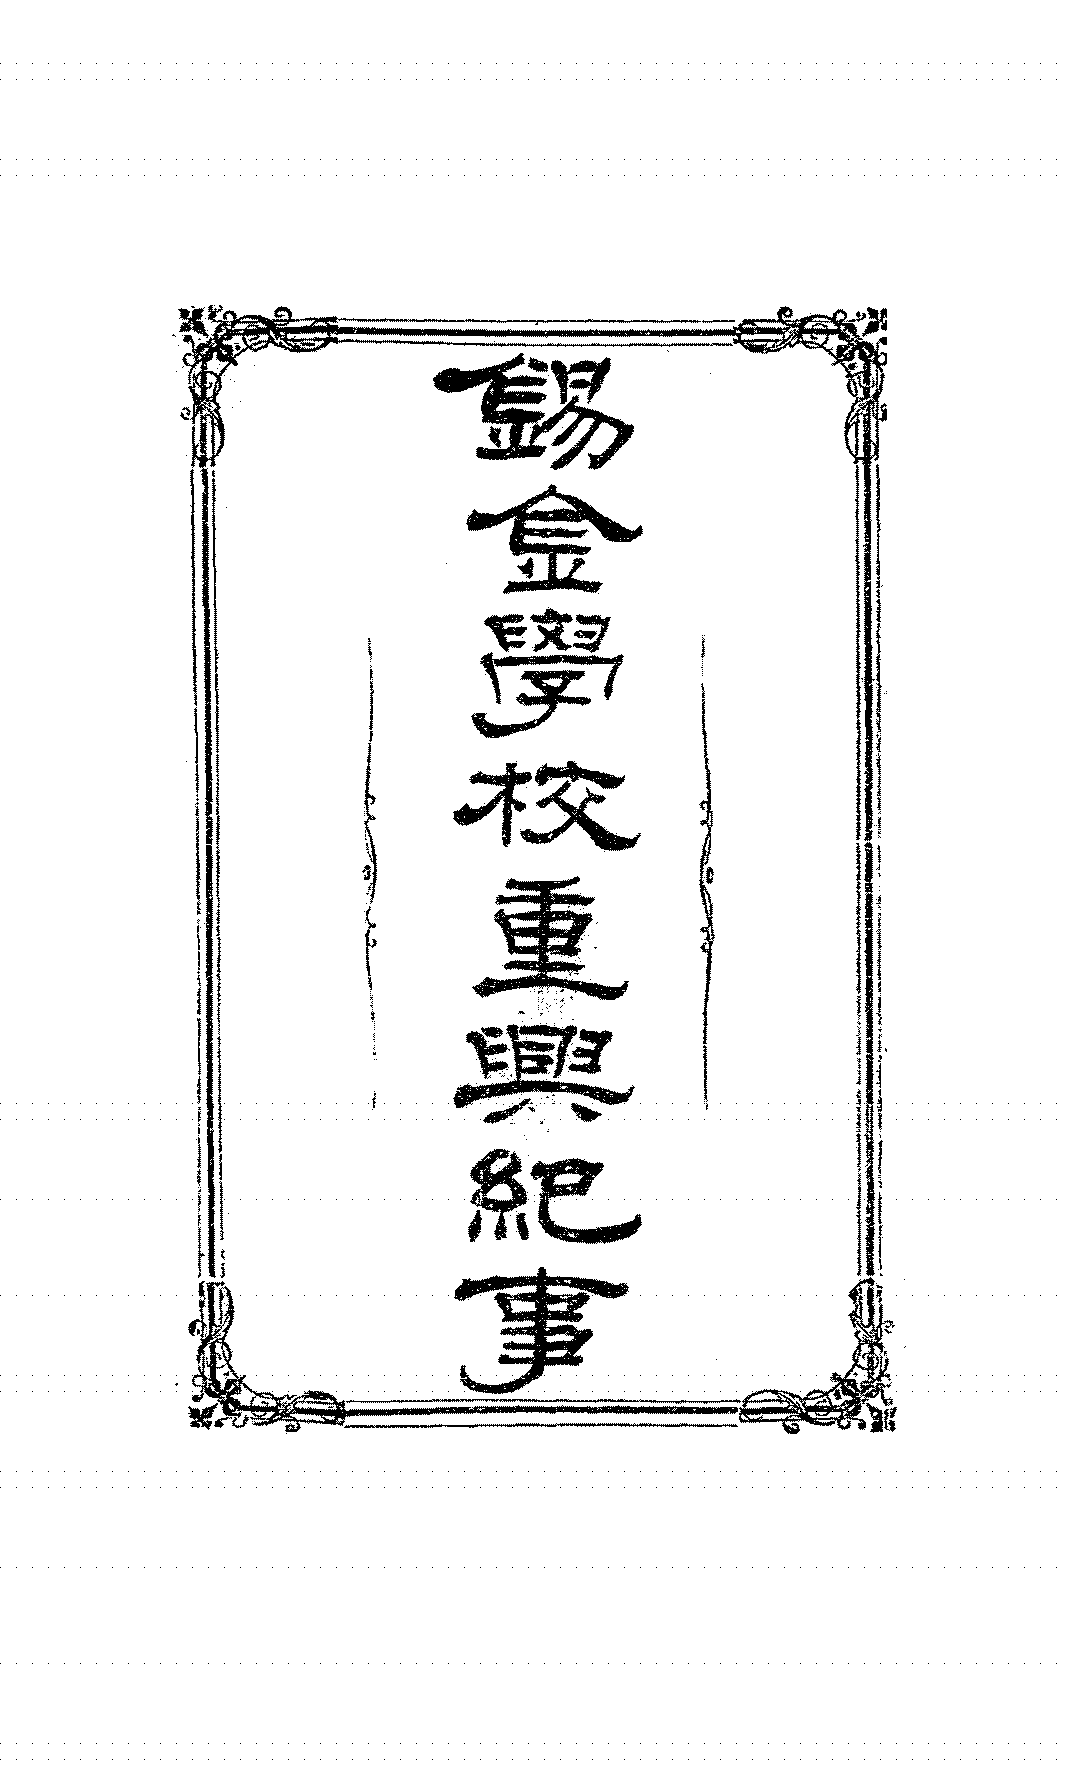 錫金學校重興紀事